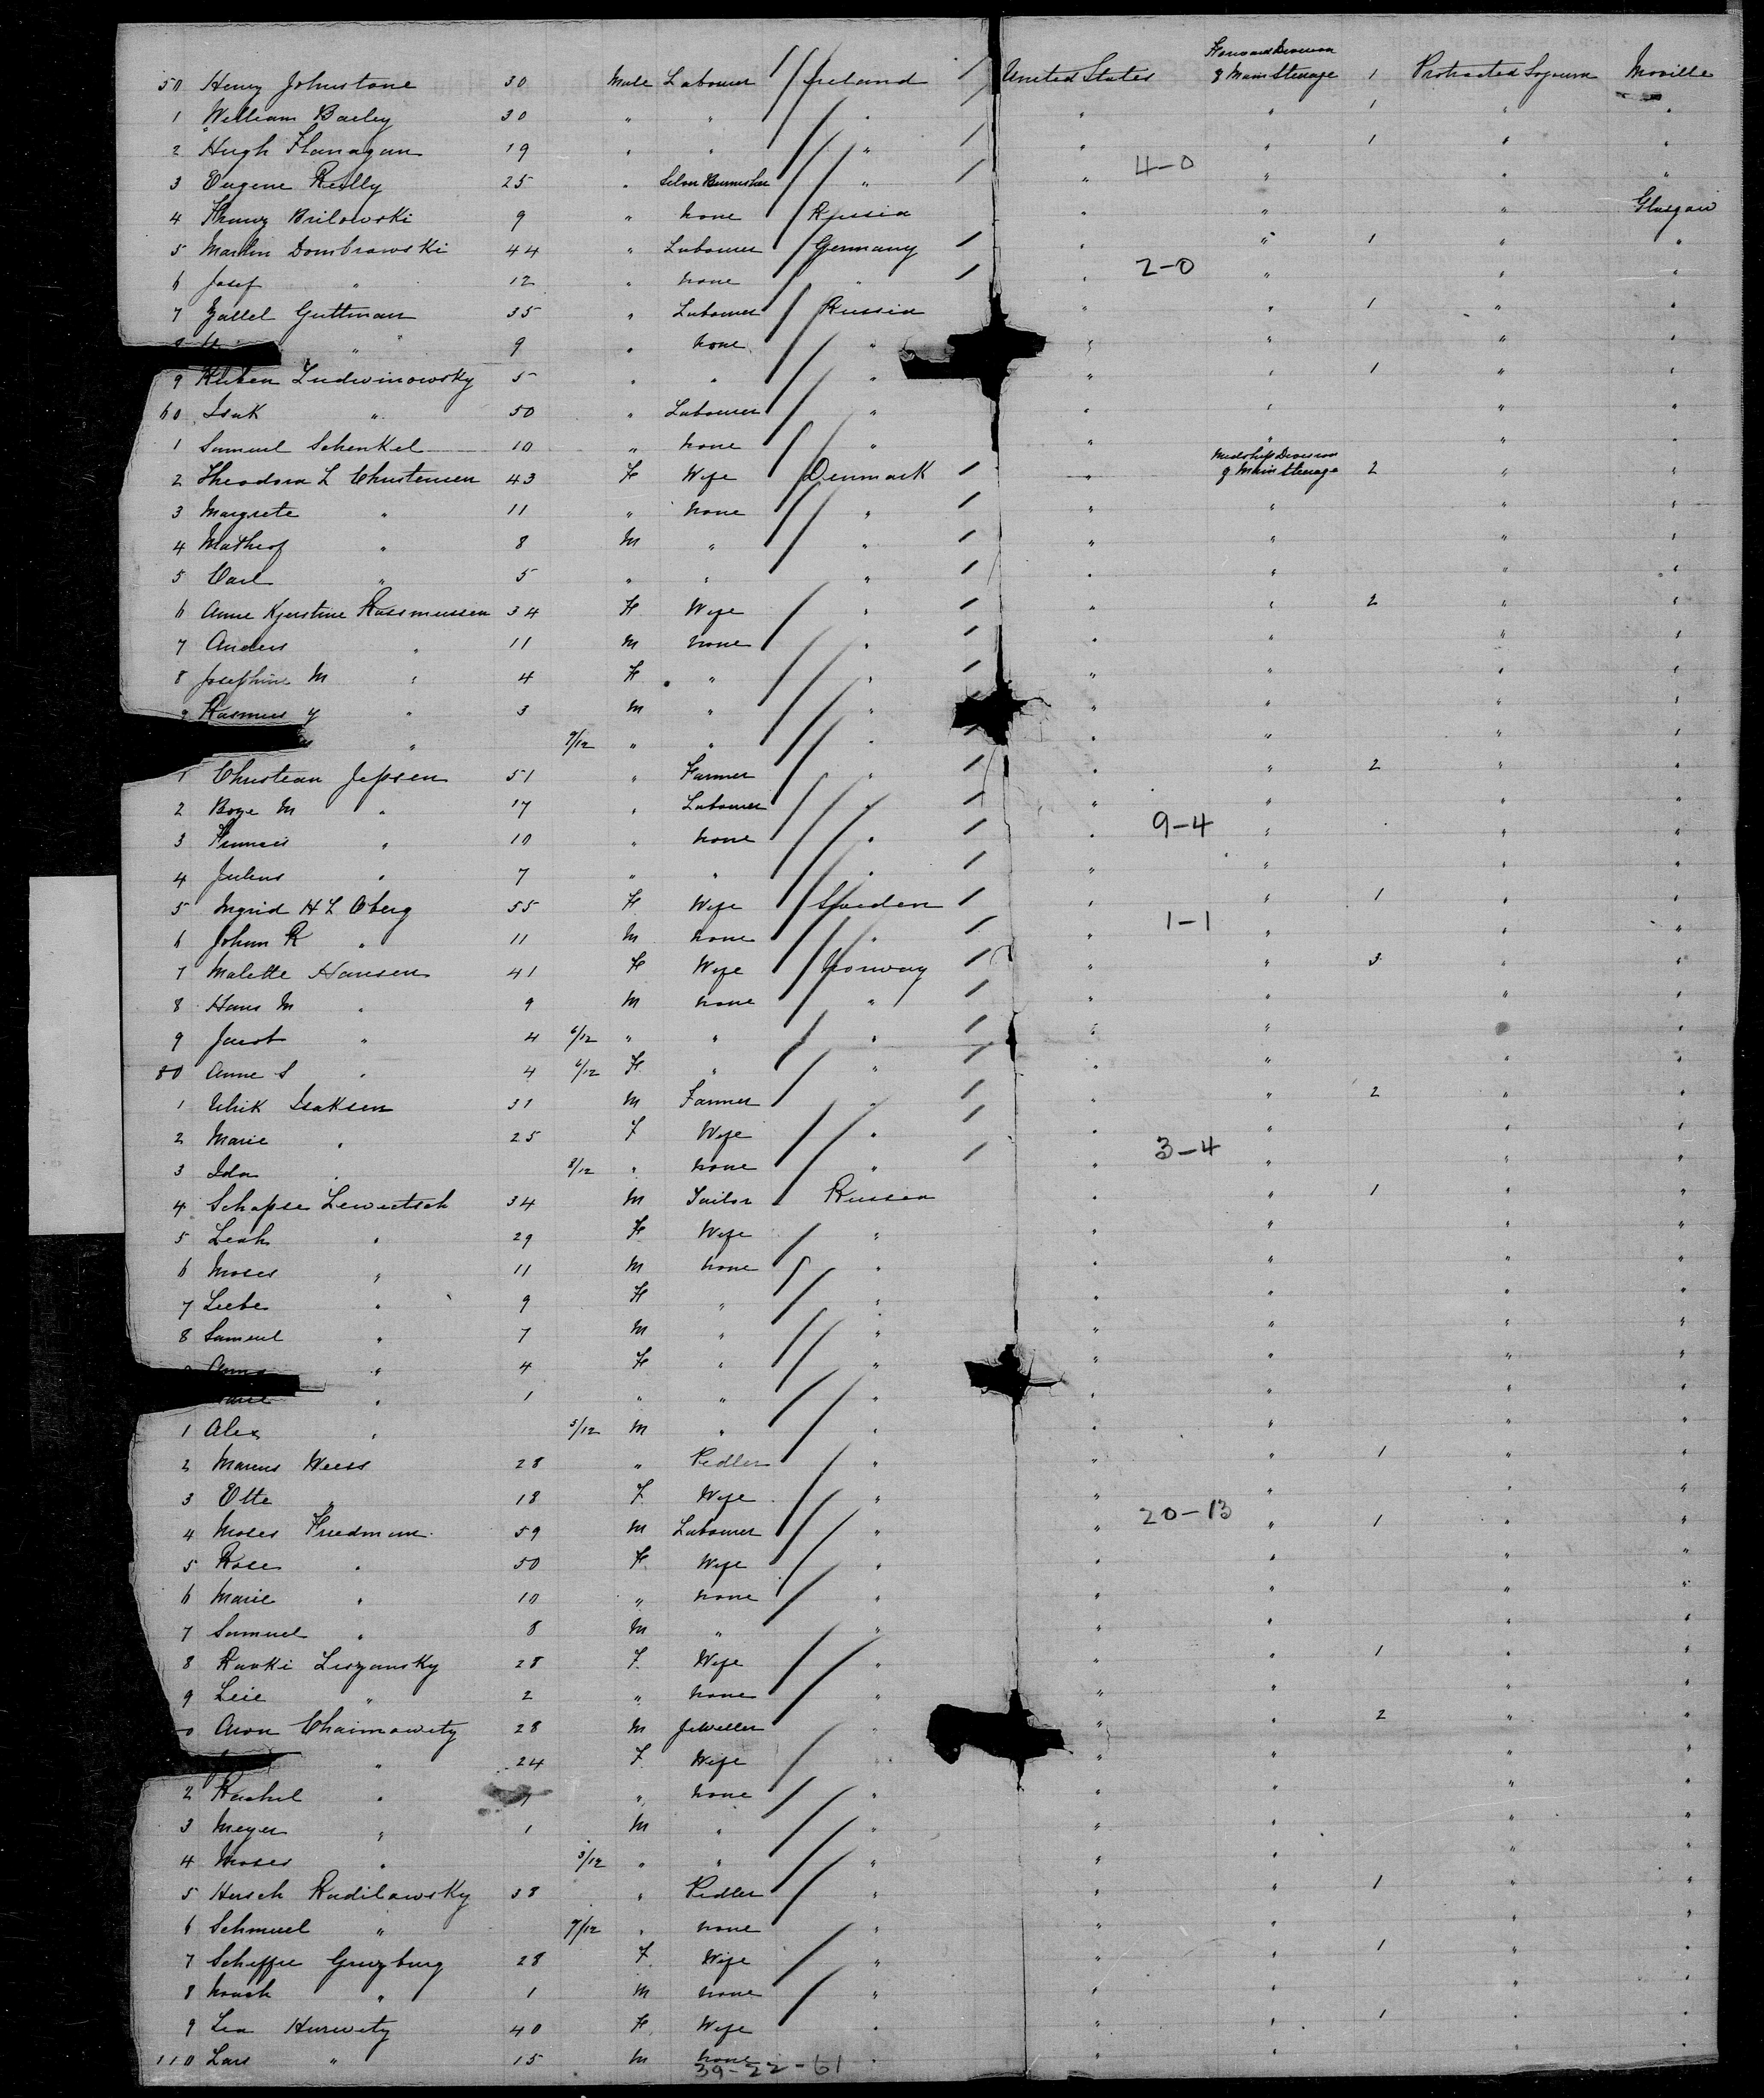 50 Henry Johnstone 30 Male Labourer Ireland United States Forward Division of Main Steerage 1 Protracted Sojourn Moville
1 William Barley 30 " " " " " 1 " "
2 Hugh Flanagan 19 " " " " " 1 " "
3 Eugene Reilly 25 " " " 4-0 " " "
4 Brilowski 9 " none Russia " " " Glasgow
5 Martin Dombrowski 44 " Labourer Germany " " 1 " "
6 Josef " 12 " none " " 2-0 " " "
7 Guttman 35 " Labourer Russia " " 1 " "
" 9 " none " " " " "
9 Ruben Ludwinowsky 5 " " " " " 1 " "
60 Isak " 50 " Labourer " " " " "
1 Samuel Schenkel 10 " none " " " " "
2 Theodora L Christensen 43 F Wife Denmark " Midship Division of Main Steerage 2 " "
3 Margrete " 11 " none " " " " "
4 " 8 M " " " " " "
5 Carl " 5 " " " " " " "
6 Anne Kjerstine Rassmussen 34 F Wife " " " 2 " "
7 Anders " 11 M none " " " " "
8 Josephine M " 4 F " " " " " "
9 Rasmus Y " 3 M " " " " " "
" 9/12 " " " " " " "
1 Christian Jepsen 51 " Farmer " " " 2 " "
2 Boye M " 17 " Labourer " " " " "
3 " 10 " none " " 9-4 " " "
4 Julius " 7 " " " " " " "
5 Ingrid H L Oberg 55 F Wife Sweden " " 1 " "
6 Johan R " 11 M none " " 1-1 " " "
7 Malette Hansen 41 F Wife Norway " " 3 " "
8 Hans M " 9 M none " " " " "
9 Jacob " 4 6/12 " " " " " "
80 Anne S " 4 6/12 F " " " " " "
1 Ulrik Isaksen 31 M Farmer " " " 2 " "
2 Marie " 25 F Wife " " " " "
3 Ida " 8/12 " none " " 3-4 " " "
4 Schapse Lewertsch 34 M Tailor Russia " " 1 " "
5 Leah " 29 F Wife " " " " "
6 Moses " 11 M none " " " " "
7 Liebe " 9 F " " " " " "
8 Samuel " 7 M " " " " " "
Anna " 4 F " " " " " "
" 1 " " " " " " "
1 Alex " 5/12 M " " " " " "
2 Marcus Weiss 28 " Pedler " " " 1 " "
3 Otte " 18 F Wife " " " " "
4 Moses Friedman 59 M Labourer " " 20-13 " 1 " "
5 Rose " 50 F Wife " " " " "
6 Marie " 10 " none " " " " "
7 Samuel " 8 M " " " " " "
8 Liszansky 28 F Wife " " " 1 " "
9 Leie " 2 " none " " " " "
0 Aron Chaimowitz 28 M Jeweller " " " 2 " "
" 24 F Wife " " " " "
2 Rachel " " none " " " " "
3 Meyer " 1 M " " " " " "
4 Moses " 3/12 " " " " " " "
5 Hersch Radilawsky 38 " Pedler " " " 1 " "
6 Schmuel " 9/12 " none " " " " "
7 Scheffre Gruzburg 28 F Wife " " " 1 " "
8 Noach " 1 M none " " " " "
9 Lea Hurwitz 40 F Wife " " " 1 " "
110 " 15 M none " " " " "
39-22-61